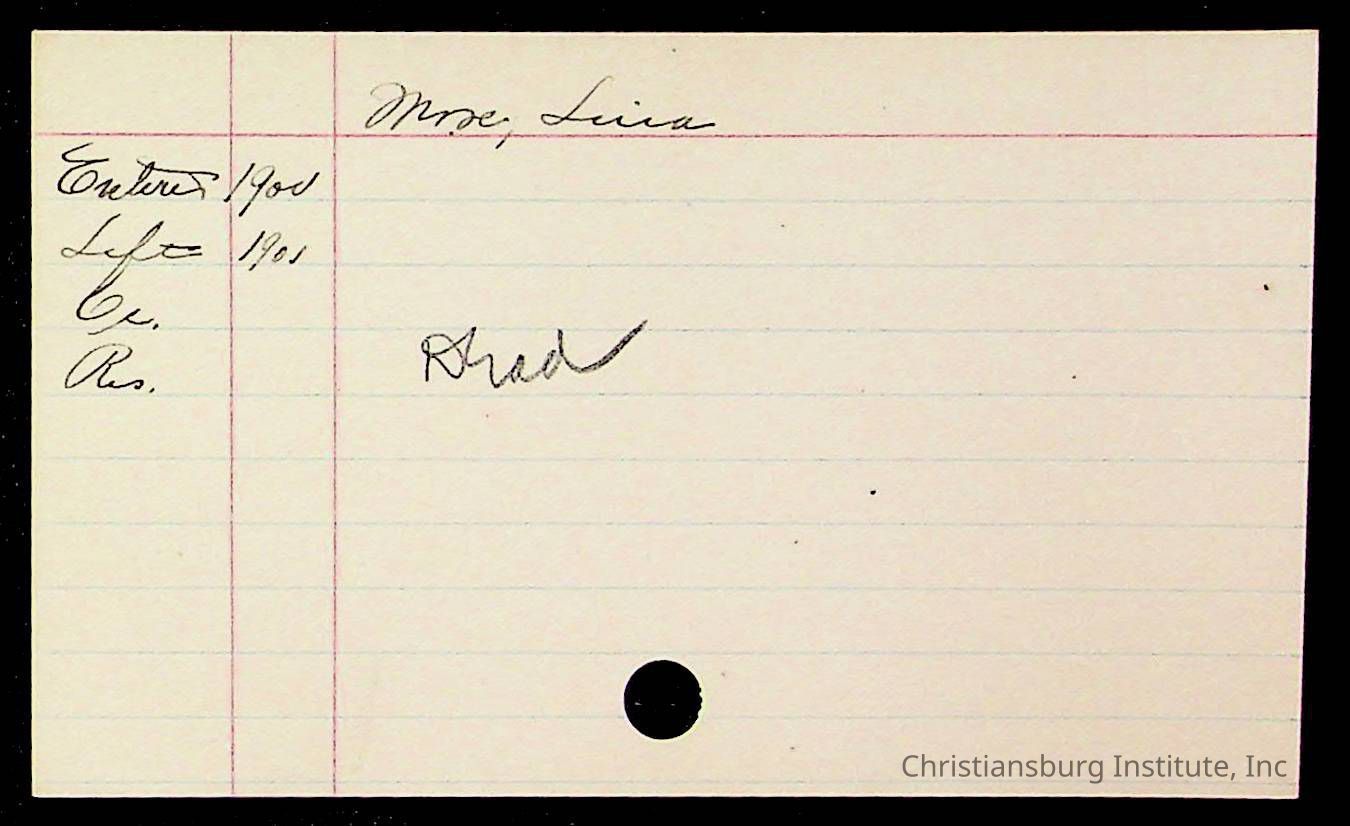 Mose, Lina
Entered 1900
Left 1901
Oc.
Res.
Dead
Christiansburg Institute, Inc